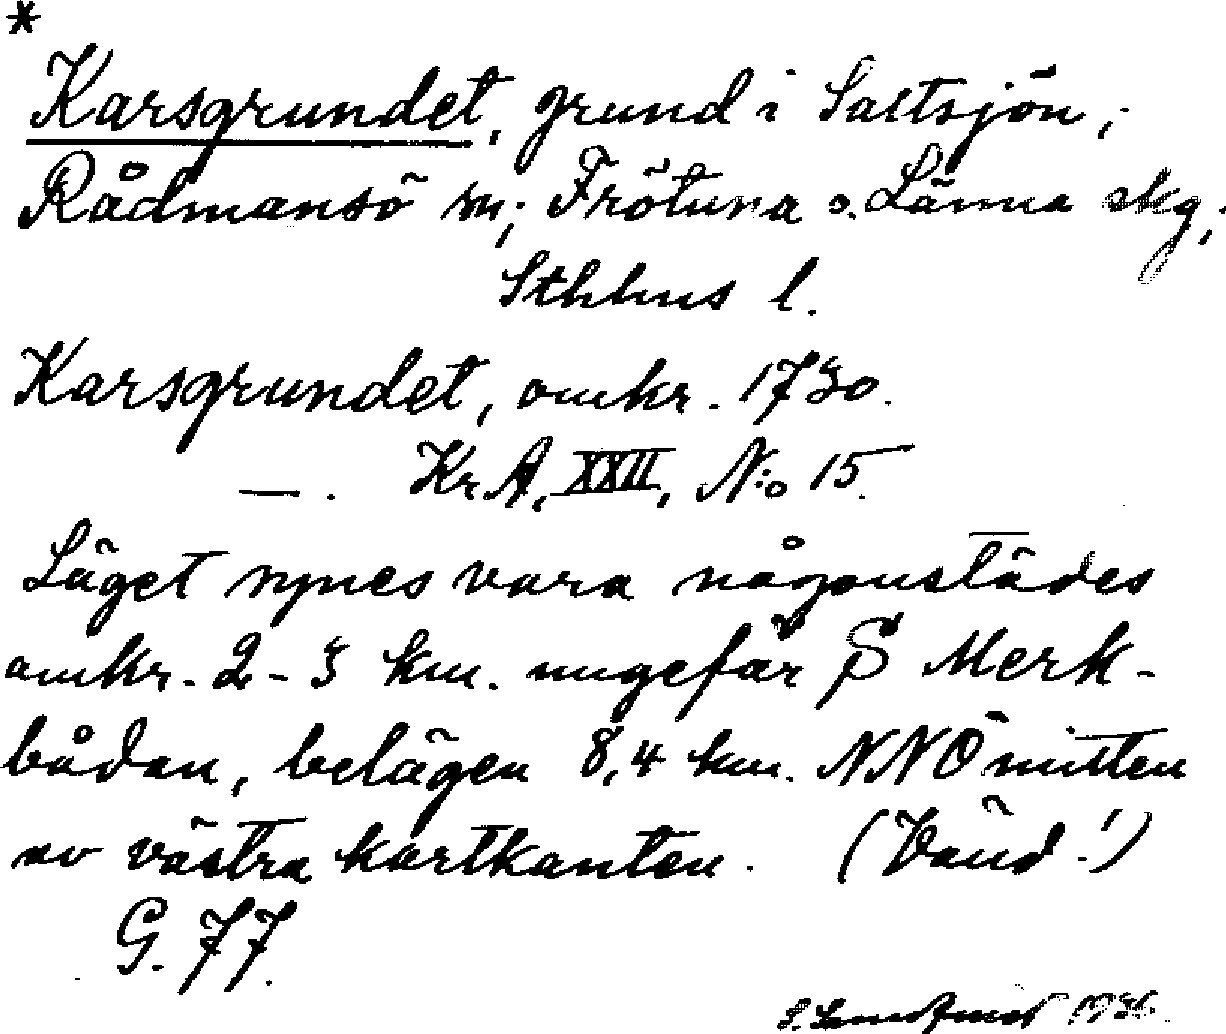 *
Karsgrundet, grund i Saltsjön,
Rådmansö sn; Frötuna o. Länna skg,
Sthlms l.
Karsgrundet, omkr. 1730.
—. KrA, XXII, N:o 15.
Läget synes vara någonstädes
omkr. 2-3 km. ungefär S Merk-
bådan, belägen 8,4 km. NNÖ mitten
av västra kartkanten. (Vänd!)
G. 77.
1936.